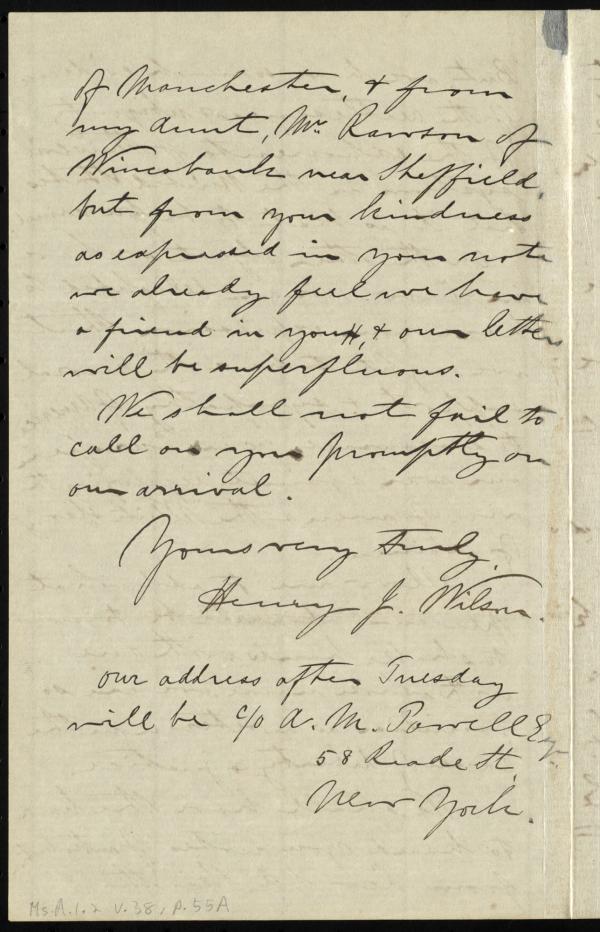 of Manchester, & from
my Aunt, Mrs. Rawson of
Wincobank near Sheffield,
but from your kindness
as expressed in your note
we already feel we have
a friend in you, & our letters
will be superfluous.
We shall not fail to
call on you promptly on
our arrival.
Yours very truly,
Henry J. Wilson.
our address after Tuesday
will be c/o A. M. Powell Esq.
58 Reade St.
New York.
Ms.A.1.2 V.38, p.55A